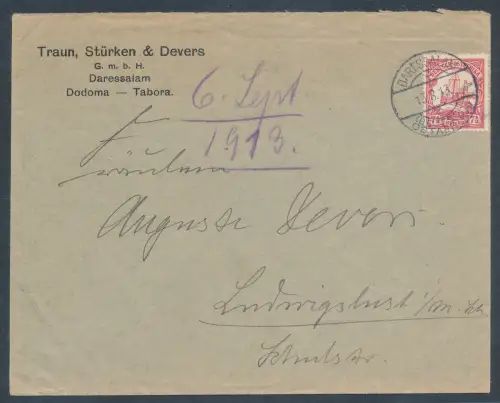 Traun, Stürken & Devers
G. m. b. H.
Daressalam
Dodoma — Tabora.
6. Sept
1913.
Fräulein
Auguste Devers
Ludwigslust i/m.
Schulstr.
DARESSALAM
7½